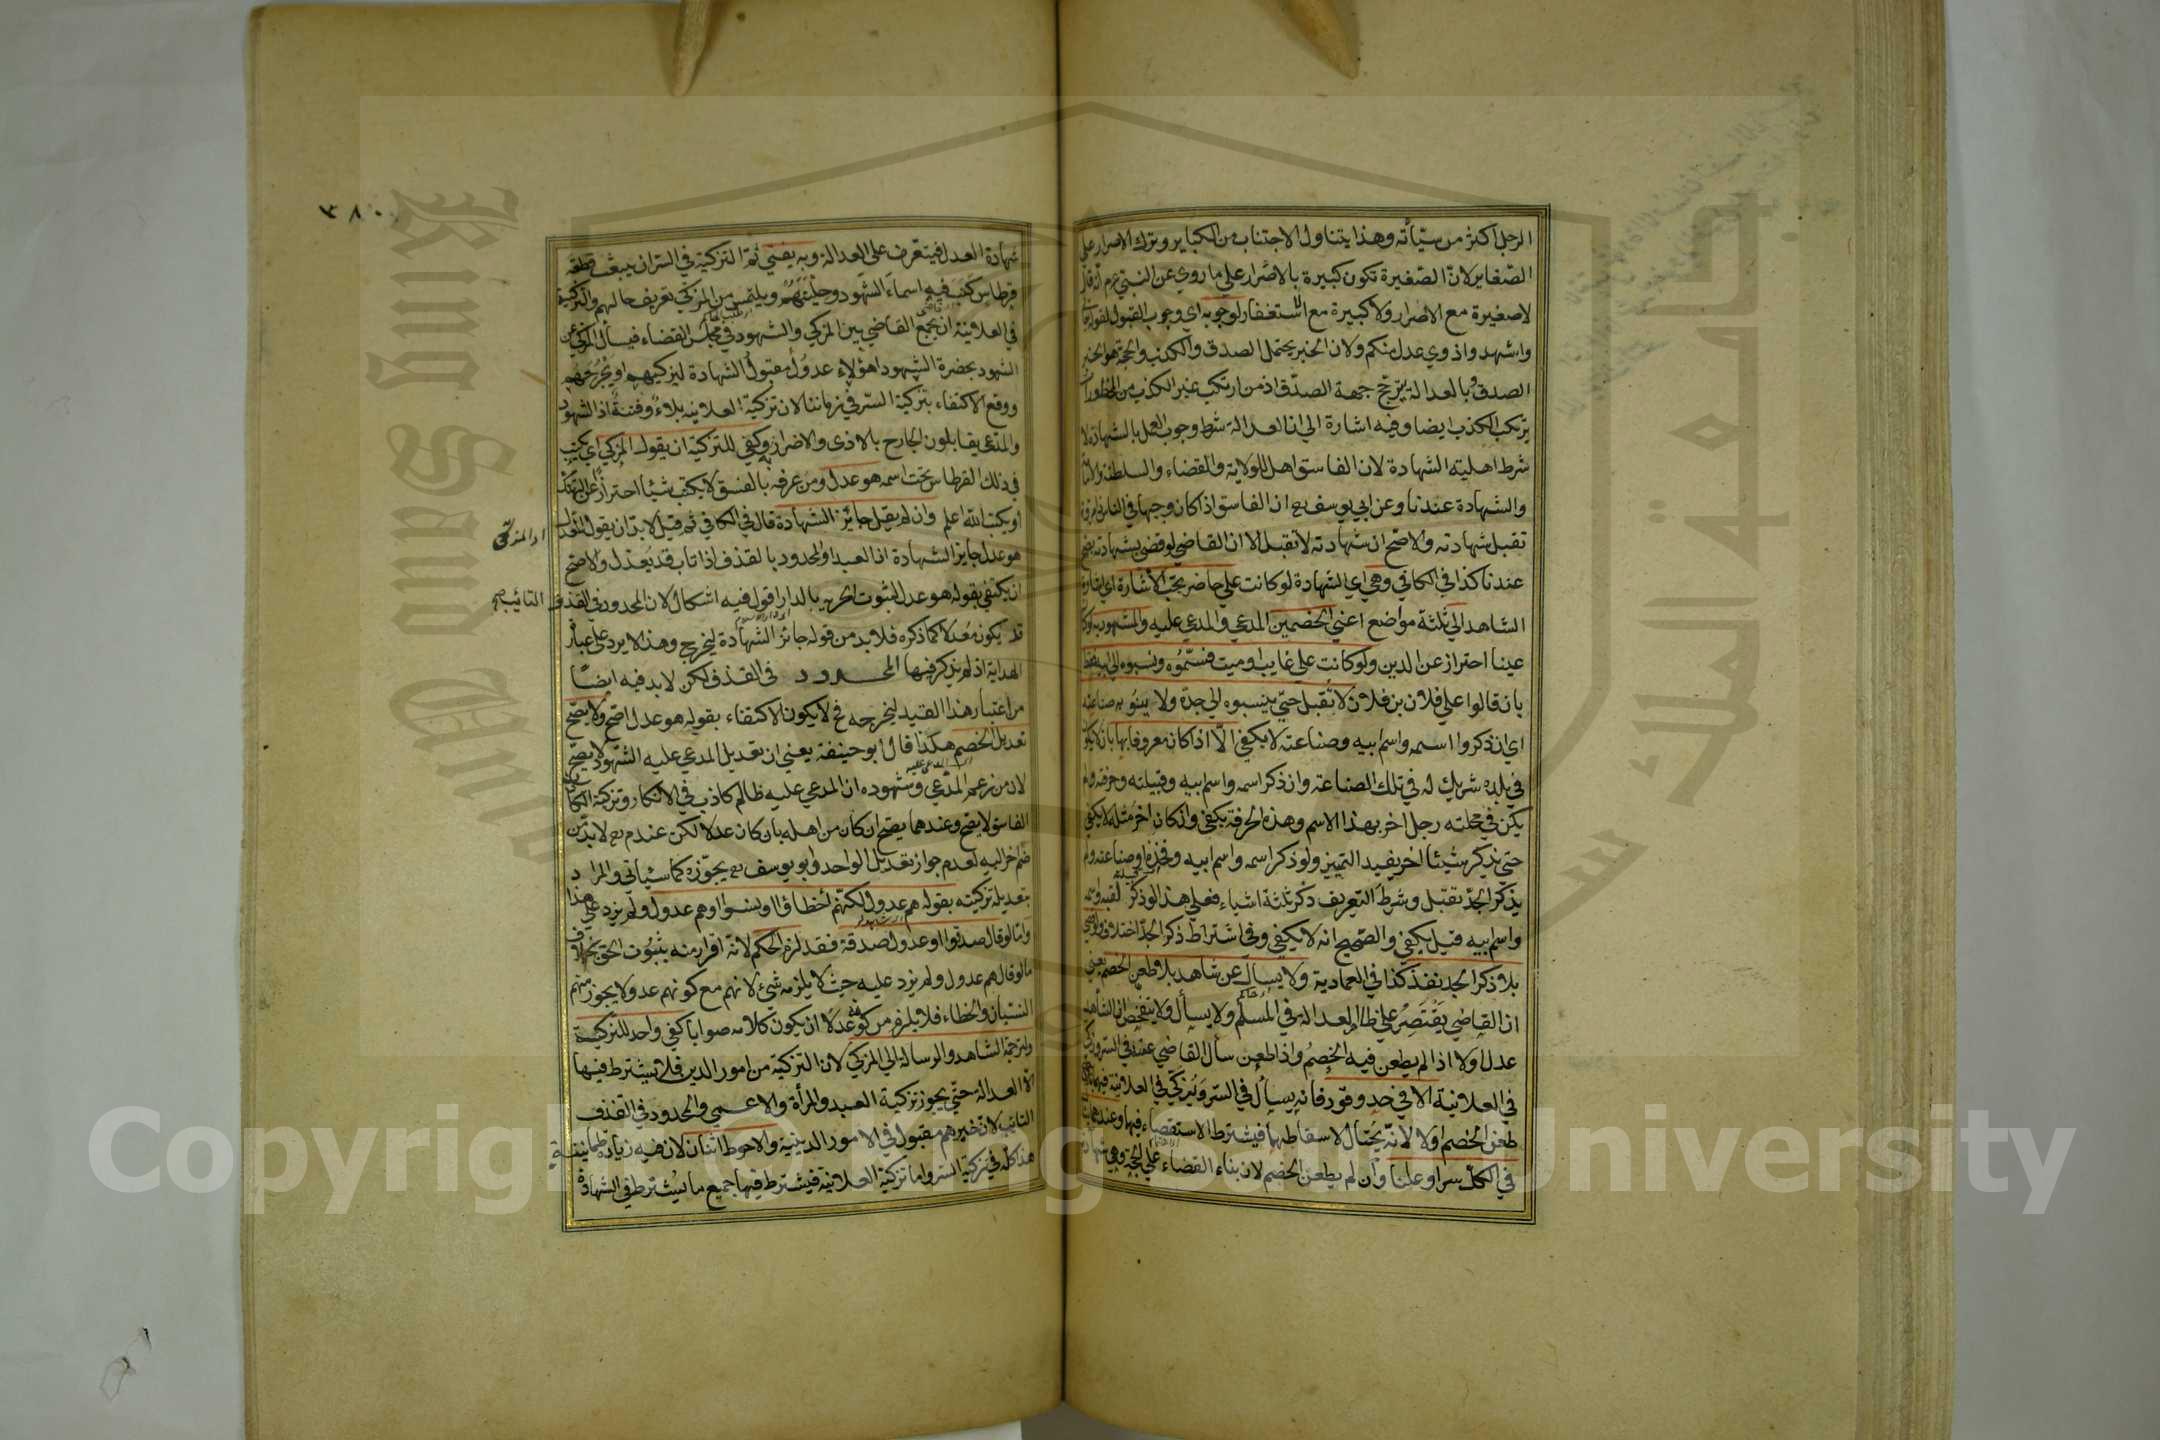 الرجل اكثر من سيّأته وهذا يتناول الاجتناب من الكباير وترك الاصرار على
الصّغاير لانّ الصّغيرة تكون كبيرة بالاصرار على ما روي عن النبي عم انه قال
لا صغيرة مع الاصرار ولا كبيرة مع الاستغفار لوجوبه اي وجوب القبول لقوله تعالى
واشهدوا ذوي عدل منكم ولان الخبر يحتمل الصدق والكذب والحجة هو الخبر
الصدق وبالعدالة يترجح جهة الصدق اذ من ارتكب غير الكذب من المحظورات
يرتكب الكذب ايضا وفيه اشارة الى ان العدالة شرط وجوب العمل بالشهادة لا
شرط اهلية الشهادة لان الفاسق اهل للولاية والقضاء والسلطنة
والشهادة عندنا وعن ابي يوسف رح ان الفاسق اذا كان وجيها في الناس
تقبل شهادته والاصح ان شهادته لا تقبل الا ان القاضي لو قضى بشهادته يصح
عندنا كذا في الكافي وهي اي الشهادة لو كانت على حاضر يجب الاشارة اي اشارة
الشاهد الى ثلثة مواضع اعني الخصمين المدعي والمدعي عليه والمشهود به لو كان
عينا احتراز عن الدين ولو كانت على غايب او ميت فسمّوه ونسبوه الى ابيه فقط
بان قالوا على فلان بن فلان لا تقبل حتى ينسبوه الى جده ولا يبنو به صناعته
اي ان ذكروا اسمه واسم ابيه وصناعته لا يكفي الّا اذا كان معروفا بها بان لا يكون
في بلده شريك له في تلك الصناعة وان ذكر اسمه واسم ابيه وقبيلته وحرفته ولم
يكن في محلته رجل اخر بهذا الاسم وهذه الحرفة يكفي وان كان اخر مثله لا يكفي
حتى يذكر شيئا اخر يفيد التمييز ولو ذكر اسمه واسم ابيه وفخذه او صناعته ولم
يذكر الجد تقبل وشرط التعريف ذكر ثلثة اشياء فعلى هذا لو ذكر لقبه واسمه
واسم ابيه قيل يكفي والصحيح انه لا يكفي وفي اشتراط ذكر الجد اختلاف
بلا ذكر الجد نفذ كذا في العمادية ولا يسأل عن شاهد بلا طعن الخصم يعني
ان القاضي يقتصر على ظاهر العدالة في المسلم ولا يسأل ولا يتفحص ان الشاهد
عدل اولا اذا لم يطعن فيه الخصم واذا طعن سأل القاضي عنه في السر وزكي
في العلانية الا في حد وقود فانه يسأل في السر ويزكي في العلانية فيهما
طعن الخصم اولا لانه يحتال لاسقاطها فيشترط الاستقصاء فيها وعندهما
في الكل سرا وعلنا وان لم يطعن الخصم لان بناء القضاء على الحجة وهي شهادة
٣٨٠
شهادة العدل فيتعرف على العدالة وبه يفتي ثم التزكية في السر ان يبعث قطعة
قرطاس كتب فيه اسماء الشهود وحليتهم ويلتمس من المزكي تعريف حالهم والتزكية
في العلانية ان يجمع القاضي بين المزكي والشهود في مجلس القضاء فيسأل المزكي عن
الشهود بحضرة الشهود اهؤلاء عدول مقبول الشهادة ليزكيهم او يجرحهم
ووقع الاكتفاء بتزكية السر في زماننا لان تزكية العلانية بلاء وفتنة اذ الشهود
والمدعي يقابلون الجارح بالاذى والاضرار وكفى للتزكية ان يقول المزكي اي يكتب
في ذلك القرطاس تحت اسمه هو عدل ومن عرفه بالفسق لا يكتب شيئا احترازا عن الهتك
او يكتب الله اعلم وان لم يقل جائز الشهادة قال في الكافي ثم قيل لا بد ان يقول المعدل
او المزكّي
هو عدل جايز الشهادة اذ العبد او المحدود بالقذف اذا تاب قد يعدل والاصح
ان يكتفي بقوله هو عدل لثبوت الحرية بالدار اقول فيه اشكال لان المحدود في القذف
التائب صح
قد يكون معدلا كما ذكره فلا بد من قوله جائز الشهادة ليخرج وهذا لا يرد على عبارة
الهداية اذ لم يذكر فيها المحدود في القذف لكن لا بد فيه ايضًا
من اعتبار هذا القيد ليخرجه فح لا يكون الاكتفاء بقوله هو عدل اصح ولا يصح
تعديل الخصم هكذا قال ابو حنيفة يعني ان تعديل المدعي عليه الشهود لا يصح
لان من زعم المدعي وشهوده ان المدعي عليه ظالم كاذب في الانكار وتزكية الكاذب
الفاسق لا يصح وعندهما يصح ان كان من اهله بان كان عدلا لكن عند م رح لا بد من
ضم اخر اليه لعدم جواز تعديل الواحد وابو يوسف رح يجوزه كما سيأتي والمراد
بتعديله تزكيته بقوله هم عدول لكنهم اخطاؤا او نسوا او هم عدول ولم يزد على هذا
واما لو قال صدقوا او عدول صدقة فقد لزم الحكم لانه اقرار منه بثبوت الحق بخلاف
ما لو قال هم عدول ولم يزد عليه حيث لا يلزمه شئ لانهم مع كونهم عدولا يجوز منهم
النسيان والخطاء فلا يلزم من كونه عدلا ان يكون كلامه صوابا كفى واحد للتزكية
وترجمة الشاهد والرسالة الى المزكي لان التزكية من امور الدين فلا يشترط فيها
الّا العدالة حتى يجوز تزكية العبد والمرأة والاعمى والمحدود في القذف
التائب لان خبرهم مقبول في الامور الدينية والاحوط اثنان لان فيه زيادة طمانينة
هذا كله في تزكية السر واما تزكية العلانية فيشترط فيها جميع ما يشترط في الشهادة
King Saud University
جامعة الملك سعود
Copyright © King Saud University